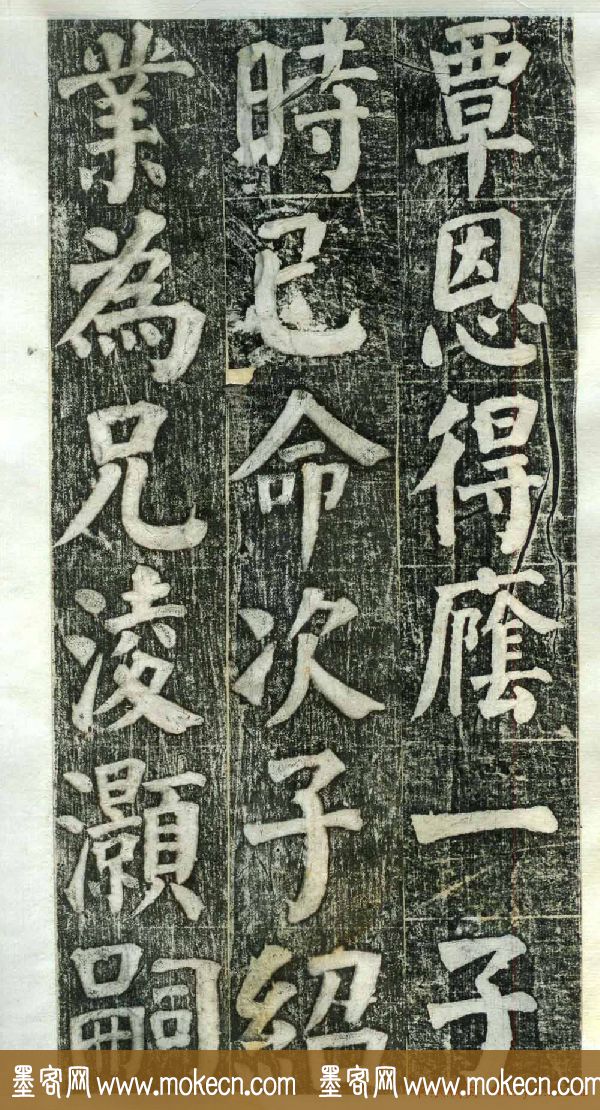 覃恩得廕一子
時已命次子紹
業為兄淩灝嗣
墨客网 www.mokecn.com 墨客网 www.mokecn.com